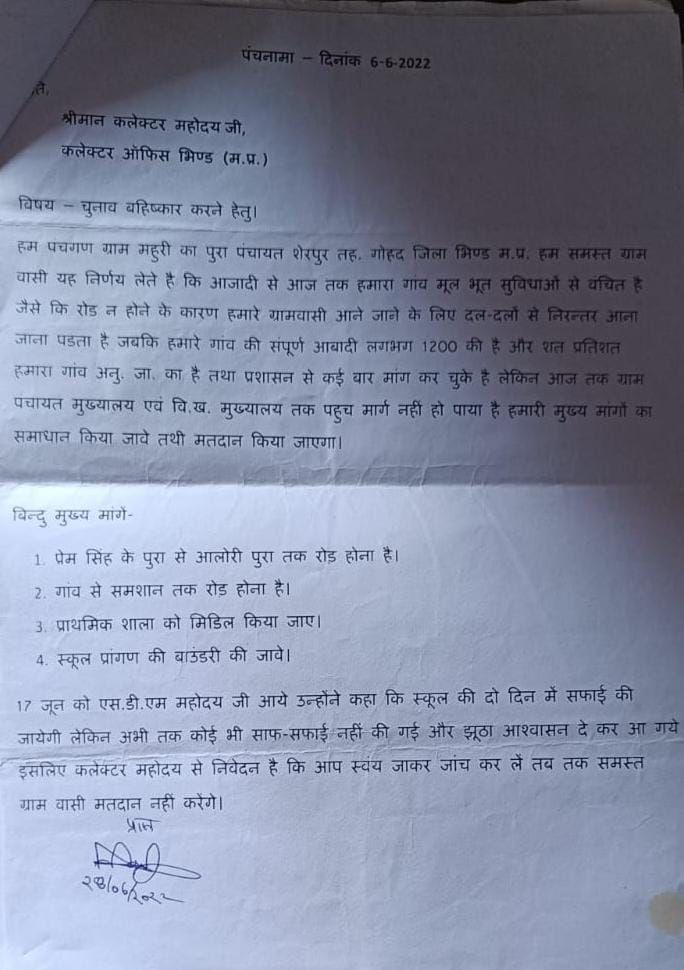 पंचनामा – दिनांक 6-6-2022
ते,
श्रीमान कलेक्टर महोदय जी,
कलेक्टर ऑफिस भिण्ड (म.प्र.)
विषय – चुनाव वहिष्कार करने हेतु।
हम पंचगण ग्राम महुरी का पुरा पंचायत शेरपुर तह. गोहद जिला भिण्ड म.प्र. हम समस्त ग्राम
वासी यह निर्णय लेते है कि आजादी से आज तक हमारा गांव मूल भूत सुविधाओं से वंचित है
जैसे कि रोड न होने के कारण हमारे ग्रामवासी आने जाने के लिए दल-दलों से निरन्तर आना
जाना पडता है जबकि हमारे गांव की संपूर्ण आबादी लगभग 1200 की है और शत प्रतिशत
हमारा गांव अनु. जा. का है तथा प्रशासन से कई बार मांग कर चुके है लेकिन आज तक ग्राम
पंचायत मुख्यालय एवं वि.ख. मुख्यालय तक पहुच मार्ग नहीं हो पाया है हमारी मुख्य मांगों का
समाधान किया जावे तथी मतदान किया जाएगा।
बिन्दु मुख्य मांगे-
1. प्रेम सिंह के पुरा से आलोरी पुरा तक रोड होना है।
2. गांव से समशान तक रोड होना है।
3. प्राथमिक शाला को मिडिल किया जाए।
4. स्कूल प्रांगण की बाउंडरी की जावे।
17 जून को एस.डी.एम महोदय जी आये उन्होंने कहा कि स्कूल की दो दिन में सफाई की
जायेगी लेकिन अभी तक कोई भी साफ-सफाई नहीं की गई और झूठा आश्वासन दे कर आ गये
इसलिए कलेक्टर महोदय से निवेदन है कि आप स्वयं जाकर जांच कर लें तब तक समस्त
ग्राम वासी मतदान नहीं करेंगे।